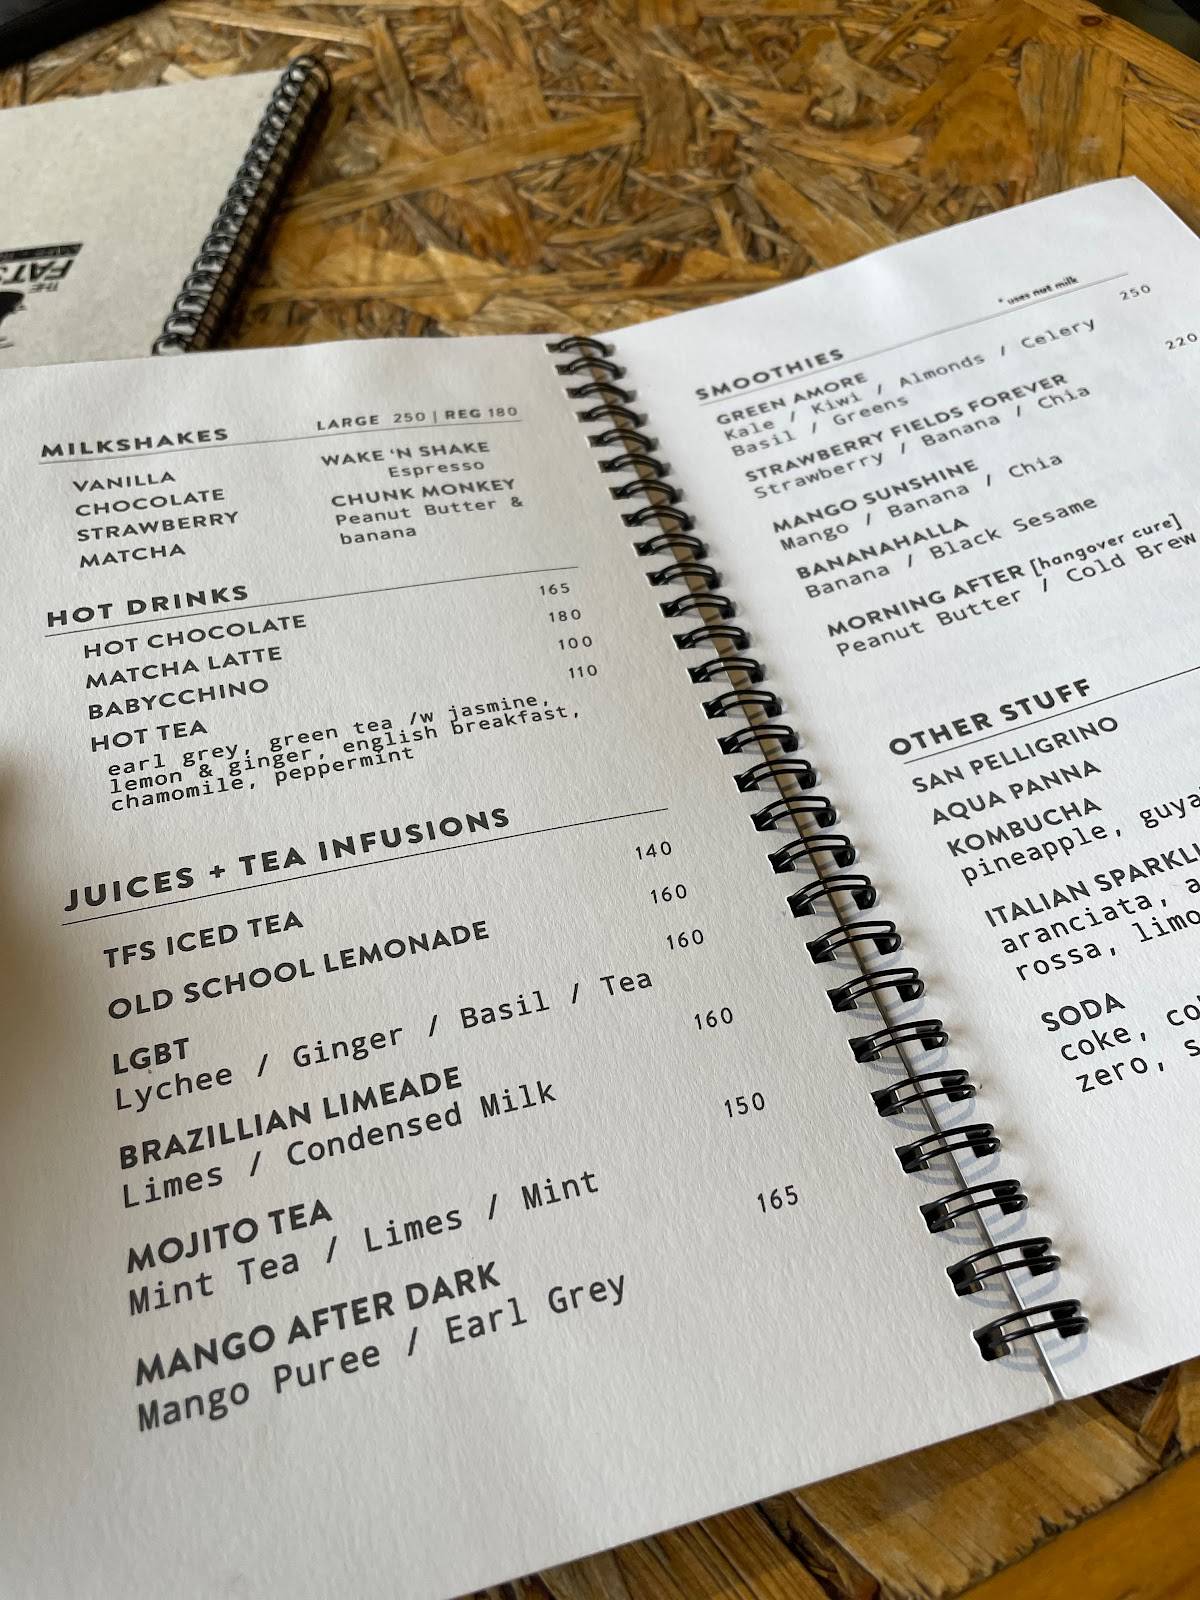 THE
FATS
MILKSHAKES LARGE 250 | REG 180
VANILLA
CHOCOLATE
STRAWBERRY
MATCHA
WAKE 'N SHAKE
Espresso
CHUNK MONKEY
Peanut Butter &
banana
HOT DRINKS
HOT CHOCOLATE 165
MATCHA LATTE 180
BABYCCHINO 100
HOT TEA 110
earl grey, green tea /w jasmine,
lemon & ginger, english breakfast,
chamomile, peppermint
JUICES + TEA INFUSIONS
TFS ICED TEA 140
OLD SCHOOL LEMONADE 160
LGBT 160
Lychee / Ginger / Basil / Tea
BRAZILLIAN LIMEADE 160
Limes / Condensed Milk
MOJITO TEA 150
Mint Tea / Limes / Mint
MANGO AFTER DARK 165
Mango Puree / Earl Grey
SMOOTHIES * uses nut milk
GREEN AMORE 250
Kale / Kiwi / Almonds / Celery
Basil / Greens
STRAWBERRY FIELDS FOREVER 220
Strawberry / Banana / Chia
MANGO SUNSHINE
Mango / Banana / Chia
BANANAHALLA
Banana / Black Sesame
MORNING AFTER [hangover cure]
Peanut Butter / Cold Brew
OTHER STUFF
SAN PELLIGRINO
AQUA PANNA
KOMBUCHA
pineapple, guya
ITALIAN SPARKLI
aranciata, a
rossa, limo
SODA
coke, co
zero, s